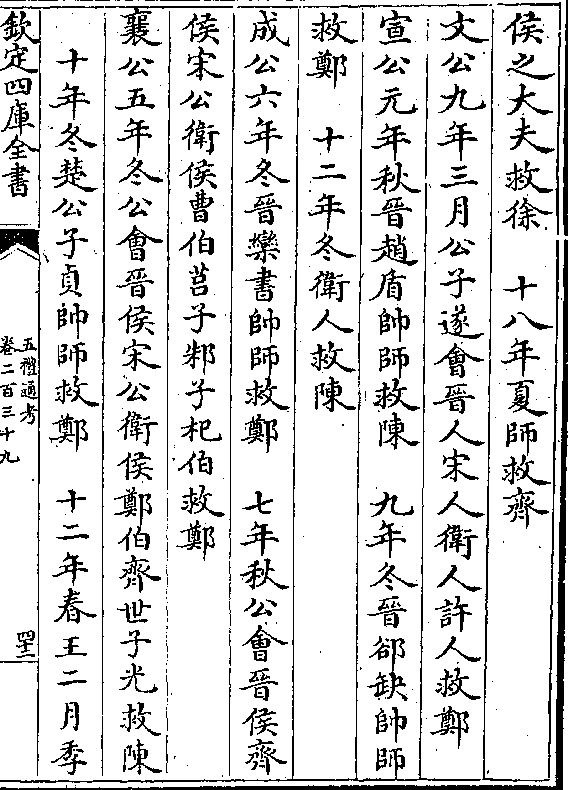 侯之大夫救徐　十八年夏師救齊
文公九年三月公子遂會晉人宋人衛人許人救鄭
宣公元年秋晉趙盾帥師救陳　九年冬晉郤缺帥師
救鄭　十二年冬衛人救陳
成公六年冬晉欒書帥師救鄭　七年秋公會晉侯齊
侯宋公衛侯曹伯莒子邾子杞伯救鄭
襄公五年冬公會晉侯宋公衛侯鄭伯齊世子光救陳
十年冬楚公子貞帥師救鄭　十二年春王二月季
欽定四庫全書
五禮通考
卷二百三十九